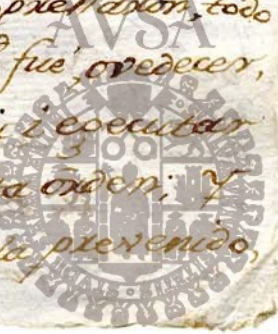 AVSA
prestaron, todo
fue, ovedecer,
i executar
a orden; Y
la prevenido,